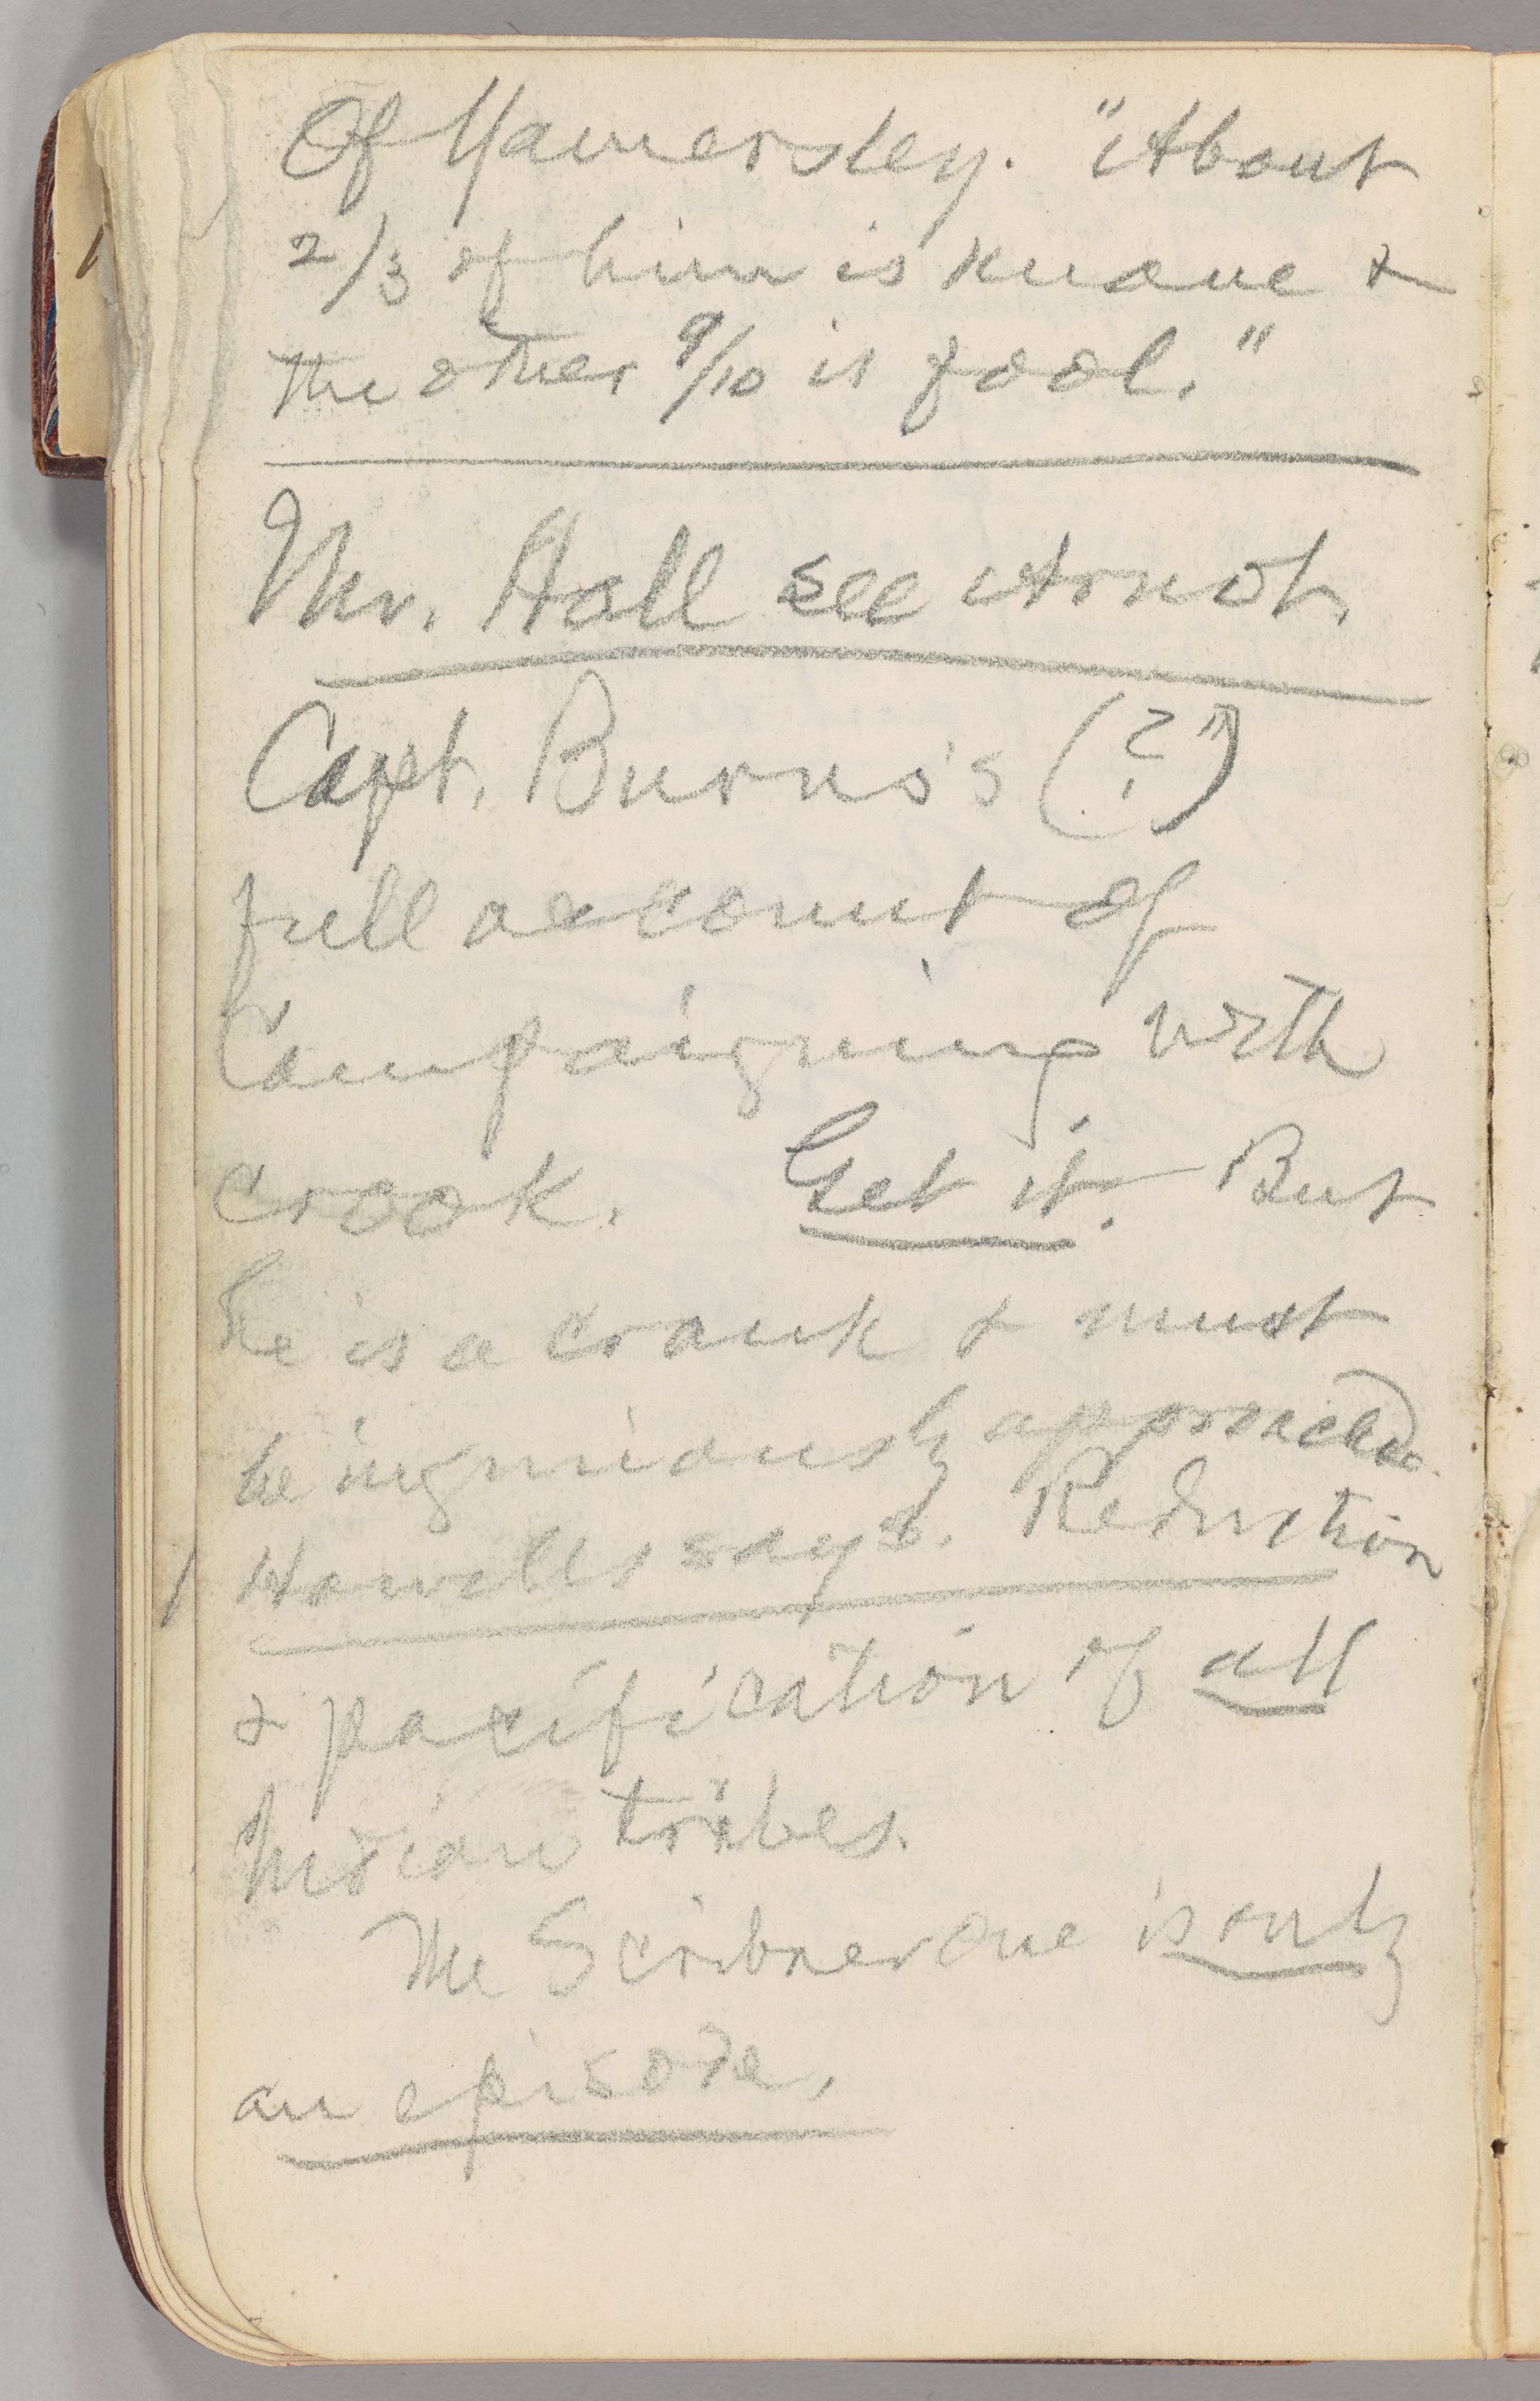 Of Hamersley. "About
2/3 of him is knave &
the other 9/10 is fool."
Mr. Hall see Arnot.
Capt. Burns's (?")
full account of
Campaigning with
Crook. Get it. But
he is a crank & must
be ingeniously approached.
Howells says. Reduction
& pacification of all
Indian tribes.
The Scribner one is only
an episode.